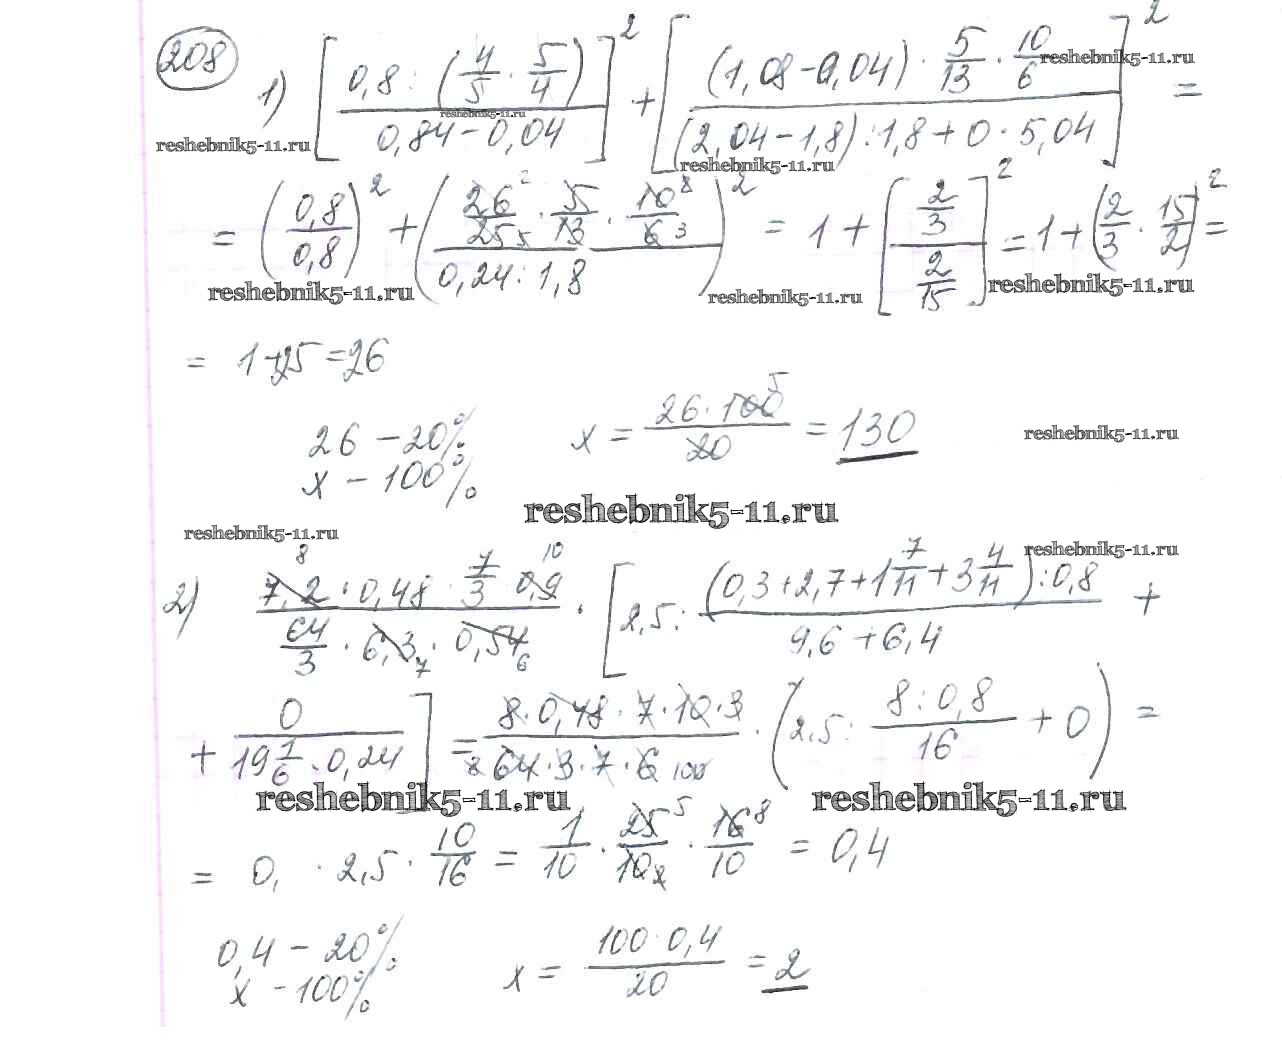 208
1) [ (0,8 : (4/5 · 5/4)) / (0,84 − 0,04) ]² + [ ((1,08 − 0,04) · 5/13 · 10/6) / ((2,04 − 1,8) : 1,8 + 0 · 5,04) ]² =
reshebnik5-11.ru reshebnik5-11.ru reshebnik5-11.ru reshebnik5-11.ru
= (0,8/0,8)² + ( (26/25 · 5/13 · 10/6) / (0,24 : 1,8) )² = 1 + [ (2/3) / (2/15) ]² = 1 + (2/3 · 15/2)² =
reshebnik5-11.ru reshebnik5-11.ru reshebnik5-11.ru
= 1 + 25 = 26
26 − 20% x = (26 · 100)/20 = 130 reshebnik5-11.ru
x − 100%
reshebnik5-11.ru reshebnik5-11.ru reshebnik5-11.ru
2) (7,2 · 0,48 · 7/3 · 0,9) / (64/3 · 6,3 · 0,54) · [ 2,5 : ((0,3 + 2,7 + 1 7/11 + 3 4/11) : 0,8) / (9,6 + 6,4) +
+ 0 / (19 1/6 · 0,24) ] = (8 · 0,48 · 7 · 10 · 3) / (64 · 3 · 7 · 6) · (2,5 : (8 : 0,8)/16 + 0) =
reshebnik5-11.ru reshebnik5-11.ru
= 0, · 2,5 · 10/16 = 1/10 · 25/10 · 16/10 = 0,4
0,4 − 20% x = (100 · 0,4)/20 = 2
x − 100%